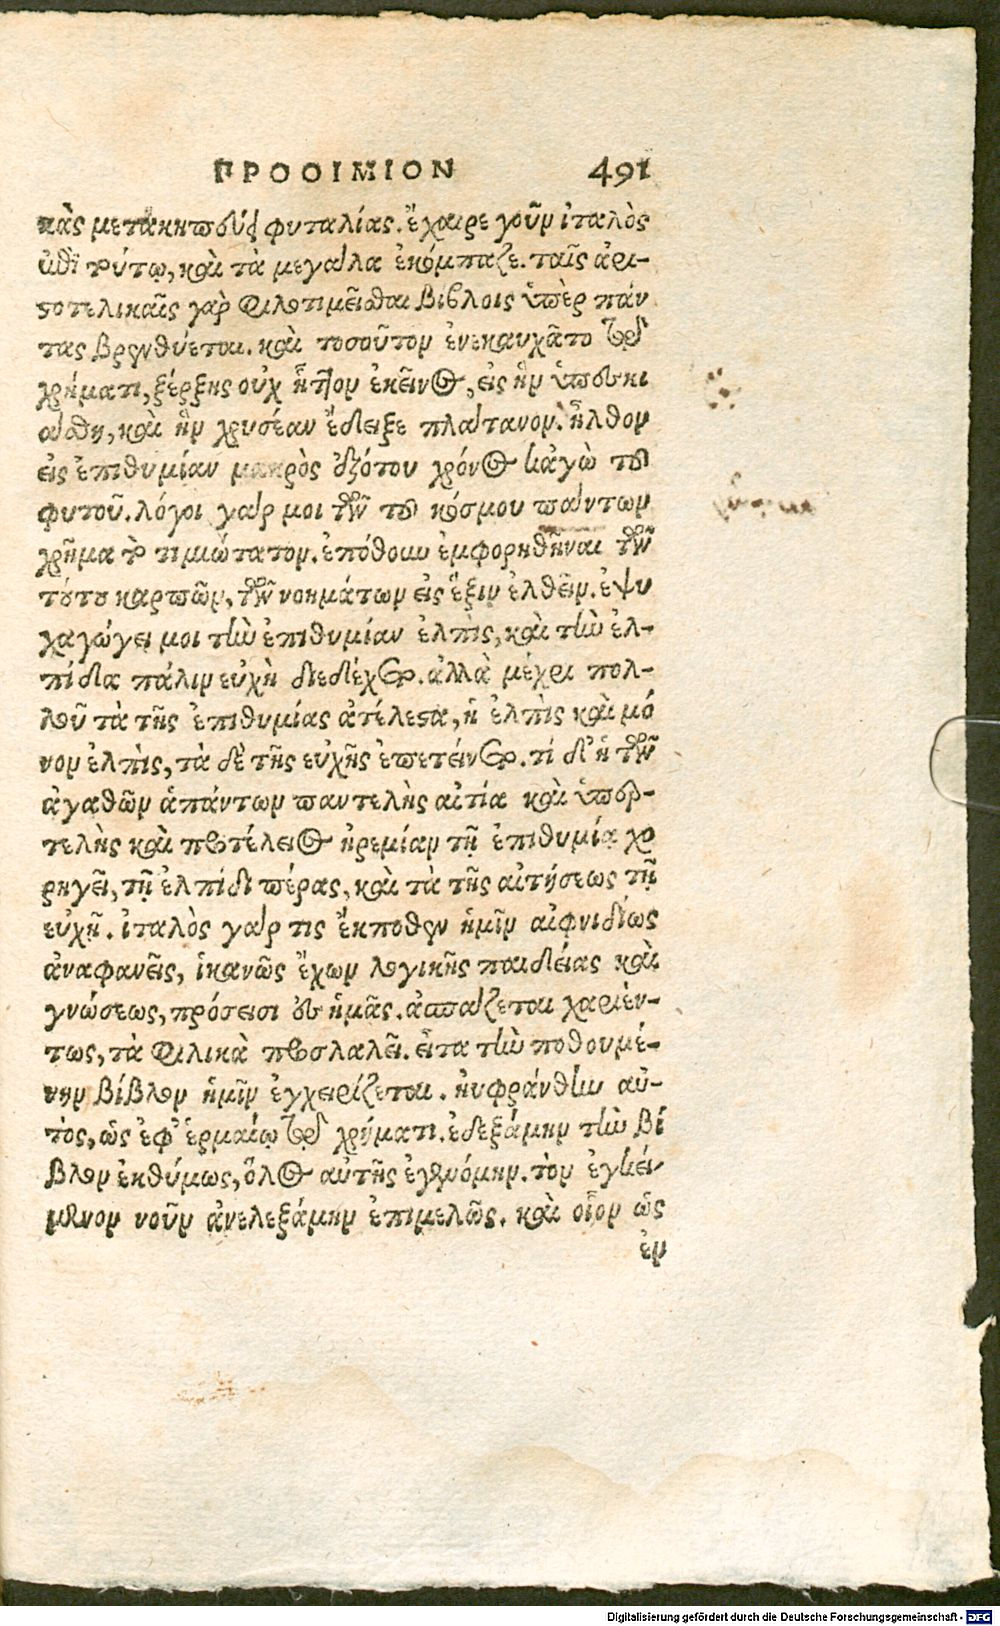 ΠΡΟΟΙΜΙΟΝ 491
κὰς μετακηπεύει φυταλίας. ἔχαιρε γοῦν ἰταλὸς
ἐπὶ τούτῳ, καὶ τὰ μεγάλα ἐκόμπαζε. ταῖς ἀρι-
στοτελικαῖς γὰρ φιλοτιμεῖσθαι βίβλοις ὑπὲρ πάν
τας βρενθύεται. καὶ τοσοῦτον ἐνεκαυχᾶτο τῷ
χρήματι, ξέρξης οὐχ ἧττον ἐκεῖνος, εἰς ἣν
καὶ ἣν χρυσέαν ἔδειξε πλάτανον. ἦλθον
εἰς ἐπιθυμίαν μακρὸς ἐξότου χρόνος κἀγὼ τοῦ
φυτοῦ. λόγοι γάρ μοι τῶν τοῦ κόσμου πάντων
χρῆμα τὸ τιμιώτατον. ἐπόθουν ἐμφορηθῆναι τῶν
τούτου καρπῶν, τῶν νοημάτων εἰς ἕξιν ἐλθεῖν. ἐψυ
χαγώγει μοι τὴν ἐπιθυμίαν ἐλπὶς, καὶ τὴν ἐλ-
πίδα πάλιν εὐχὴ διεδέχετο. ἀλλὰ μέχρι πολ-
λοῦ τὰ τῆς ἐπιθυμίας ἀτέλεστα, ἡ ἐλπὶς καὶ μό
νον ἐλπὶς, τὰ δὲ τῆς εὐχῆς ἐπετείνετο. τί δ' ἡ τῶν
ἀγαθῶν ἁπάντων παντελὴς αἰτία καὶ ὑπερ-
τελὴς καὶ προτέλειος ἠρεμίαν τῇ ἐπιθυμίᾳ χο
ρηγεῖ, τῇ ἐλπίδι πέρας, καὶ τὰ τῆς αἰτήσεως τῇ
εὐχῇ. ἰταλὸς γάρ τις ἔκποθεν ἡμῖν αἰφνιδίως
ἀναφανεὶς, ἱκανῶς ἔχων λογικῆς παιδείας καὶ
γνώσεως, πρόσεισι ἡμᾶς. ἀσπάζεται χαριέν-
τως, τὰ φιλικὰ προσλαλεῖ. εἶτα τὴν ποθουμέ-
νην βίβλον ἡμῖν ἐγχειρίζεται. ηὐφράνθην αὐ-
τὸς, ὡς ἐφ' ἑρμαίῳ τῷ χρήματι. ἐδεξάμην τὴν βί
βλον ἐκθύμως, ὅλος αὐτῆς ἐγενόμην. τὸν ἐγκεί-
μενον νοῦν ἀνελεξάμην ἐπιμελῶς. καὶ οἷον ὡς
ἐν
Digitalisierung gefördert durch die Deutsche Forschungsgemeinschaft - DFG